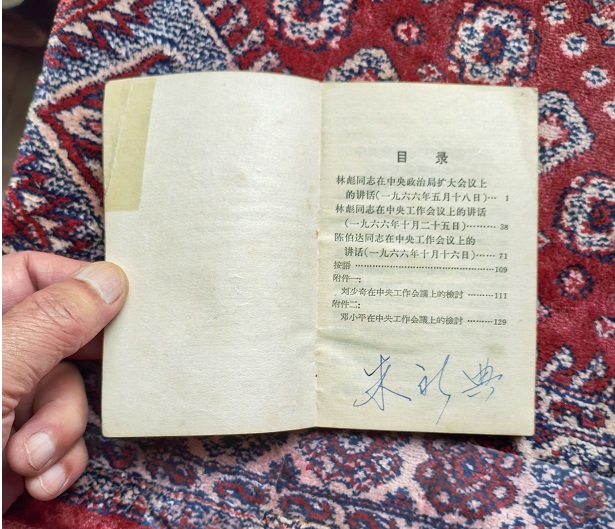 目 录
林彪同志在中央政治局扩大会议上
的讲话(一九六六年五月十八日)… 1
林彪同志在中央工作会议上的讲话
(一九六六年十月二十五日)……… 38
陈伯达同志在中央工作会议上的
讲话(一九六六年十月十六日)…… 71
按語 ……………………………………109
附件一:
刘少奇在中央工作会議上的檢討 ………111
附件二:
邓小平在中央工作会議上的檢討 ………129